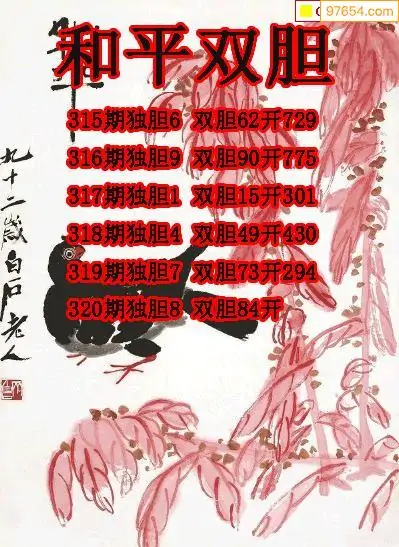 97654.com
和平双胆
315期独胆6 双胆62开729
316期独胆9 双胆90开775
317期独胆1 双胆15开301
318期独胆4 双胆49开430
319期独胆7 双胆73开294
320期独胆8 双胆84开
九十二岁白石老人